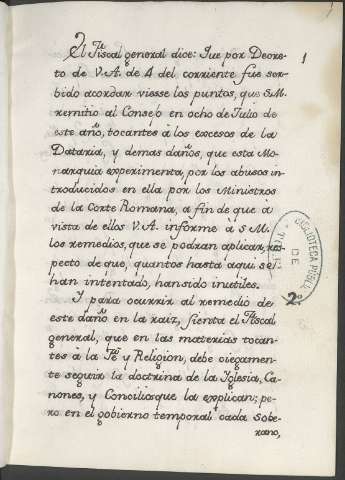 El Fiscal general dice: Que por Decre-
to de V. A. de 4 del corriente fue ser-
bido acordar viesse los puntos, que S. M.
remitió al Consejo en ocho de Julio de
este año, tocantes à los excesos de la
Dataria, y demas daños, que esta Mo-
narquia experimenta, por los abusos in-
troducidos en ella por los Ministros
de la Corte Romana, a fin de que à
vista de ellos V. A. informe à S M.
los remedios, que se podran aplicar, res-
pecto de que, quantos hasta aqui se
han intentado, han sido inutiles.
Y para ocurrir al remedio de
este daño en la raiz, sienta el Fiscal
general, que en las materias tocan-
tes à la Fè y Religion, debe ciegamen-
te seguir la doctrina de la Iglesia, Ca-
nones, y Concilios que la explican; pe-
ro en el gobierno temporal cada sobe-
rano,
1
BIBLIOTECA
DE
2º